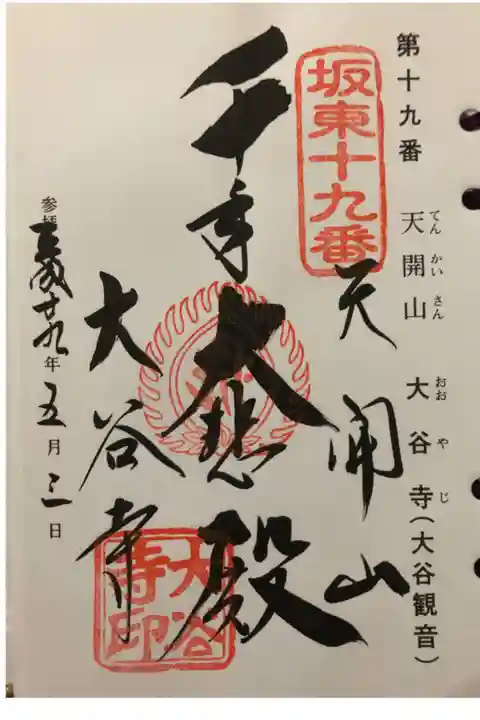 第十九番 天開山 大谷寺(大谷観音)
てん かい さん おお や じ
坂東十九番
天開山
千手大悲殿
大谷寺
大谷寺印
参拝 平成廿九年五月三日